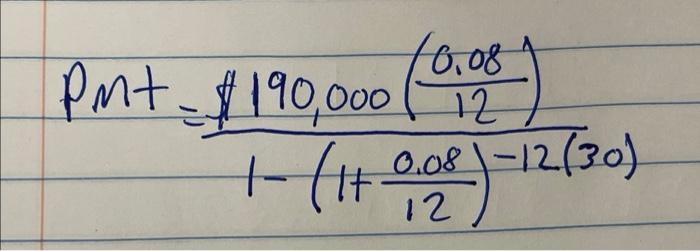 PMt = $190,000 (0.08/12)
1 - (1 + 0.08/12)^-12(30)